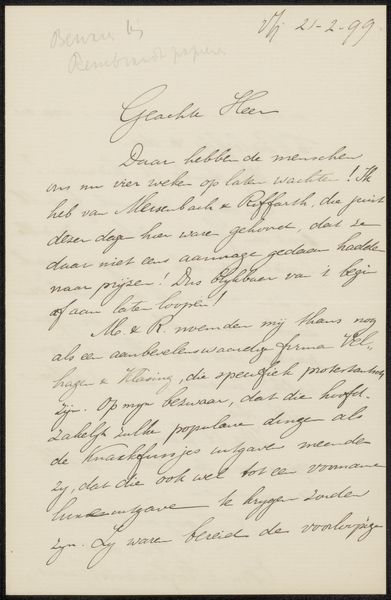 Bewaar bij
Rembrandt papieren
Vrij 21-2-99
Geachte Heer
Daar hebben de menschen
ons nu vier weken op laten wachten! Ik
heb van Meisenbach & Riffarth, die juist
dezer dagen hier ware, gehoord, dat ze
daar niet eens aanvrage gedaan hadden
naar prijzen! Dus blijkbaar van 't begin
af aan laten loopen!
M. & R. noemden mij thans nog
als een aanbevelenswaardige firma Vel-
hagen & Klasing, die specifiek protestantsch
zijn. Op mijn bezwaar, dat die hoofd-
zakelijk zulke populaire dingen als
de Knackfussjes uitgave meende
zij, dat die ook wel tot een voorname
luxe uitgave te krijgen zouden
zijn. Zij waren bereid de voorloopige